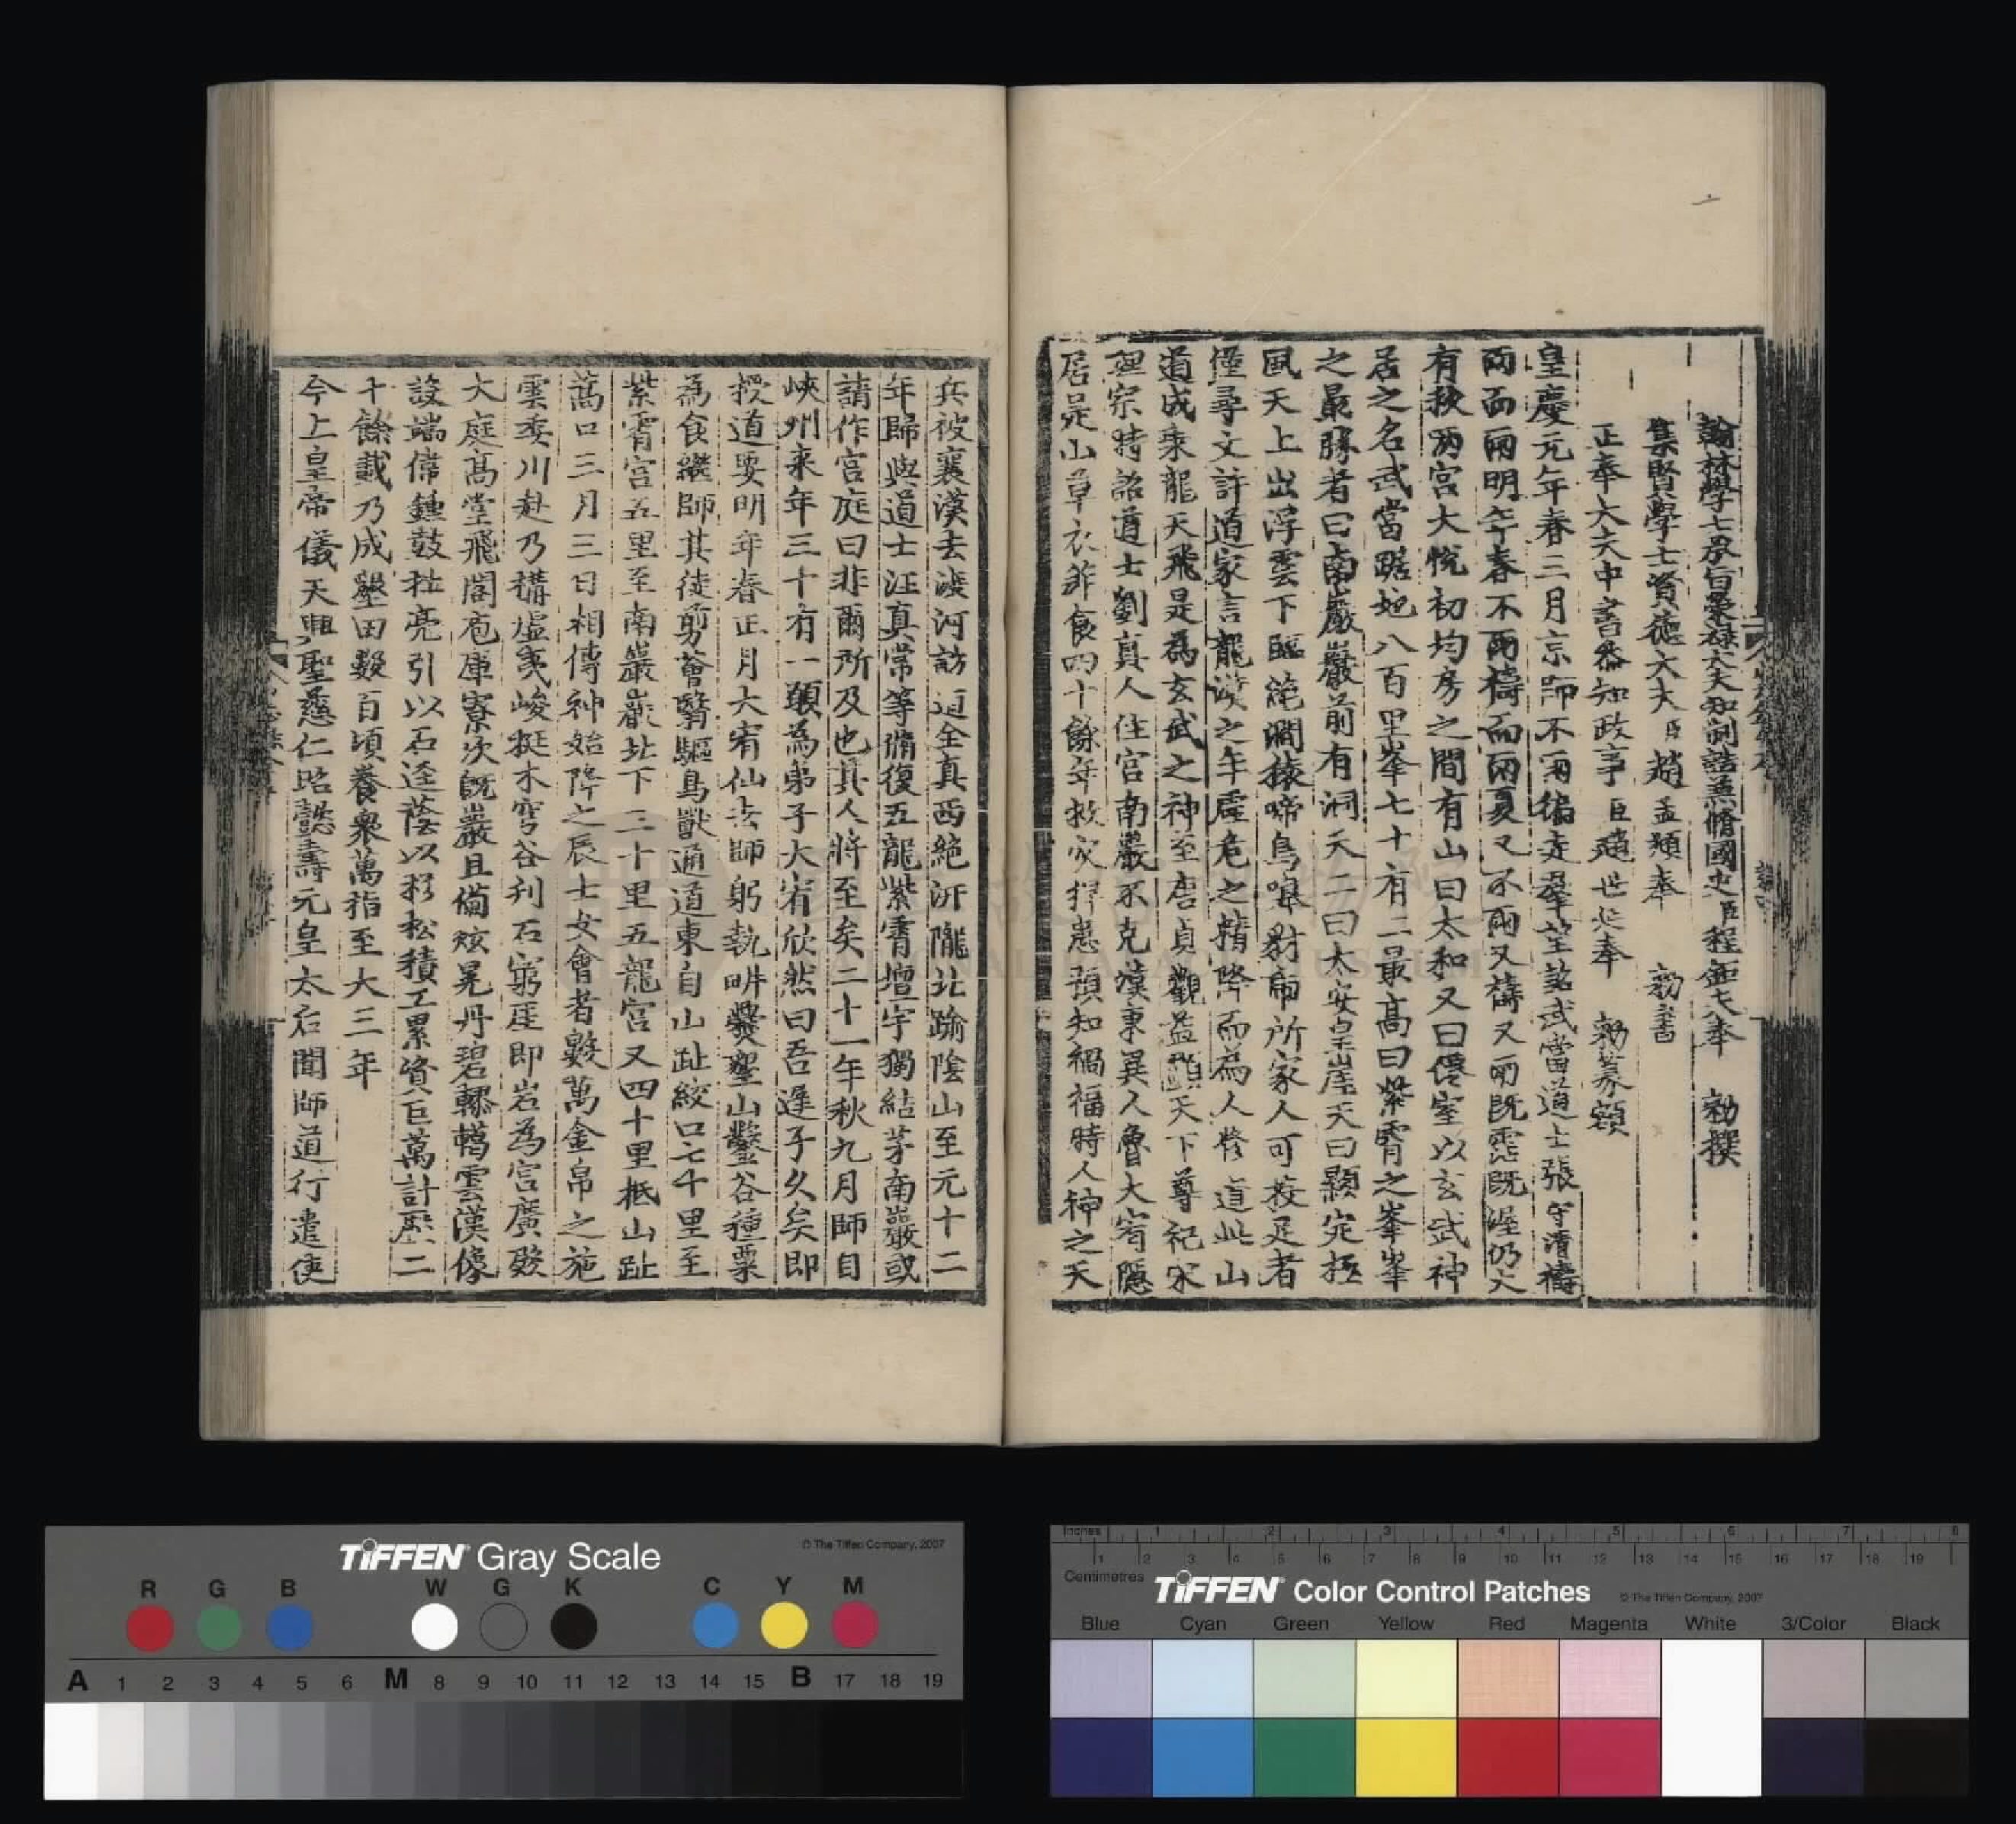 翰林學士承旨榮祿大夫知制誥兼脩國史臣程鉅夫奉 勑撰
集賢學士資德大夫臣趙孟頫奉 勑書
正奉大夫中書參知政事臣趙世延奉 勑篆額
皇慶元年春三月京師不雨徧走羣望詔武當道士張守清禱
而雨明年春不雨禱而雨夏又不雨又禱又雨既霑既渥仍大
有秋兩宮大悅初均房之間有山曰太和又曰僊室以玄武神
居之名武當踞地八百里峯七十有二最高曰紫霄之峯峯
之最勝者曰南巖巖前有洞天二曰太安皇崖天曰顯定極
風天上出浮雲下臨絶澗猿啼鳥嘷所家人可投足者
僅尋丈許道家言龍漢之年虛危之精降而為人修道此山
道成乘龍天飛是為玄武之神至唐貞觀益顯天下尊祀宋
理宗時詔道士劉真人住宮南巖不克漢東異人魯大宥隱
居是山草衣菲食四十餘年救災捍患預知禍福時人神之天
兵被襄漢去渡河訪道全真西絶汧隴北踰陰山至元十二
年歸與道士汪真常等脩復五龍紫霄壇宇獨結茅南巖或
請作宮庭曰非爾所及也其人將至矣二十一年秋九月師自
峽州來年三十有一願為弟子大宥欣然曰吾遲子久矣即
授道要明年春正月大宥仙去師躬執畊爨墾山鑿谷種粟
為食繼師其徒剪薈翳驅鳥獸通道東自山趾絞口七十里至
紫霄宮五里至南巖巖北下三十里五龍宮又四十里抵山趾
蒿口三月三日相傳神始降之辰士女會者數萬金帛之施
雲委川赴乃構虛夷峻挺木穹谷刋石窮崖即岩為宮廣殿
大庭高堂飛閣庖庫寮次既嚴且備炫晃丹碧轇轕雲漢像
設端偉鍾鼓壯亮引以石逵蔭以杉松積工累資巨萬計歷二
十餘載乃成墾田數百頃養衆萬指至大三年
今上皇帝儀天興聖慈仁昭懿壽元皇太后聞師道行遣使
TIFFEN Gray Scale
© The Tiffen Company, 2007
R G B W G K C Y M
A 1 2 3 4 5 6 M 8 9 10 11 12 13 14 15 B 17 18 19
Inches 1 2 3 4 5 6 7 8
1 2 3 4 5 6 7 8 9 10 11 12 13 14 15 16 17 18 19
Centimetres
TIFFEN Color Control Patches
© The Tiffen Company, 2007
Blue Cyan Green Yellow Red Magenta White 3/Color Black